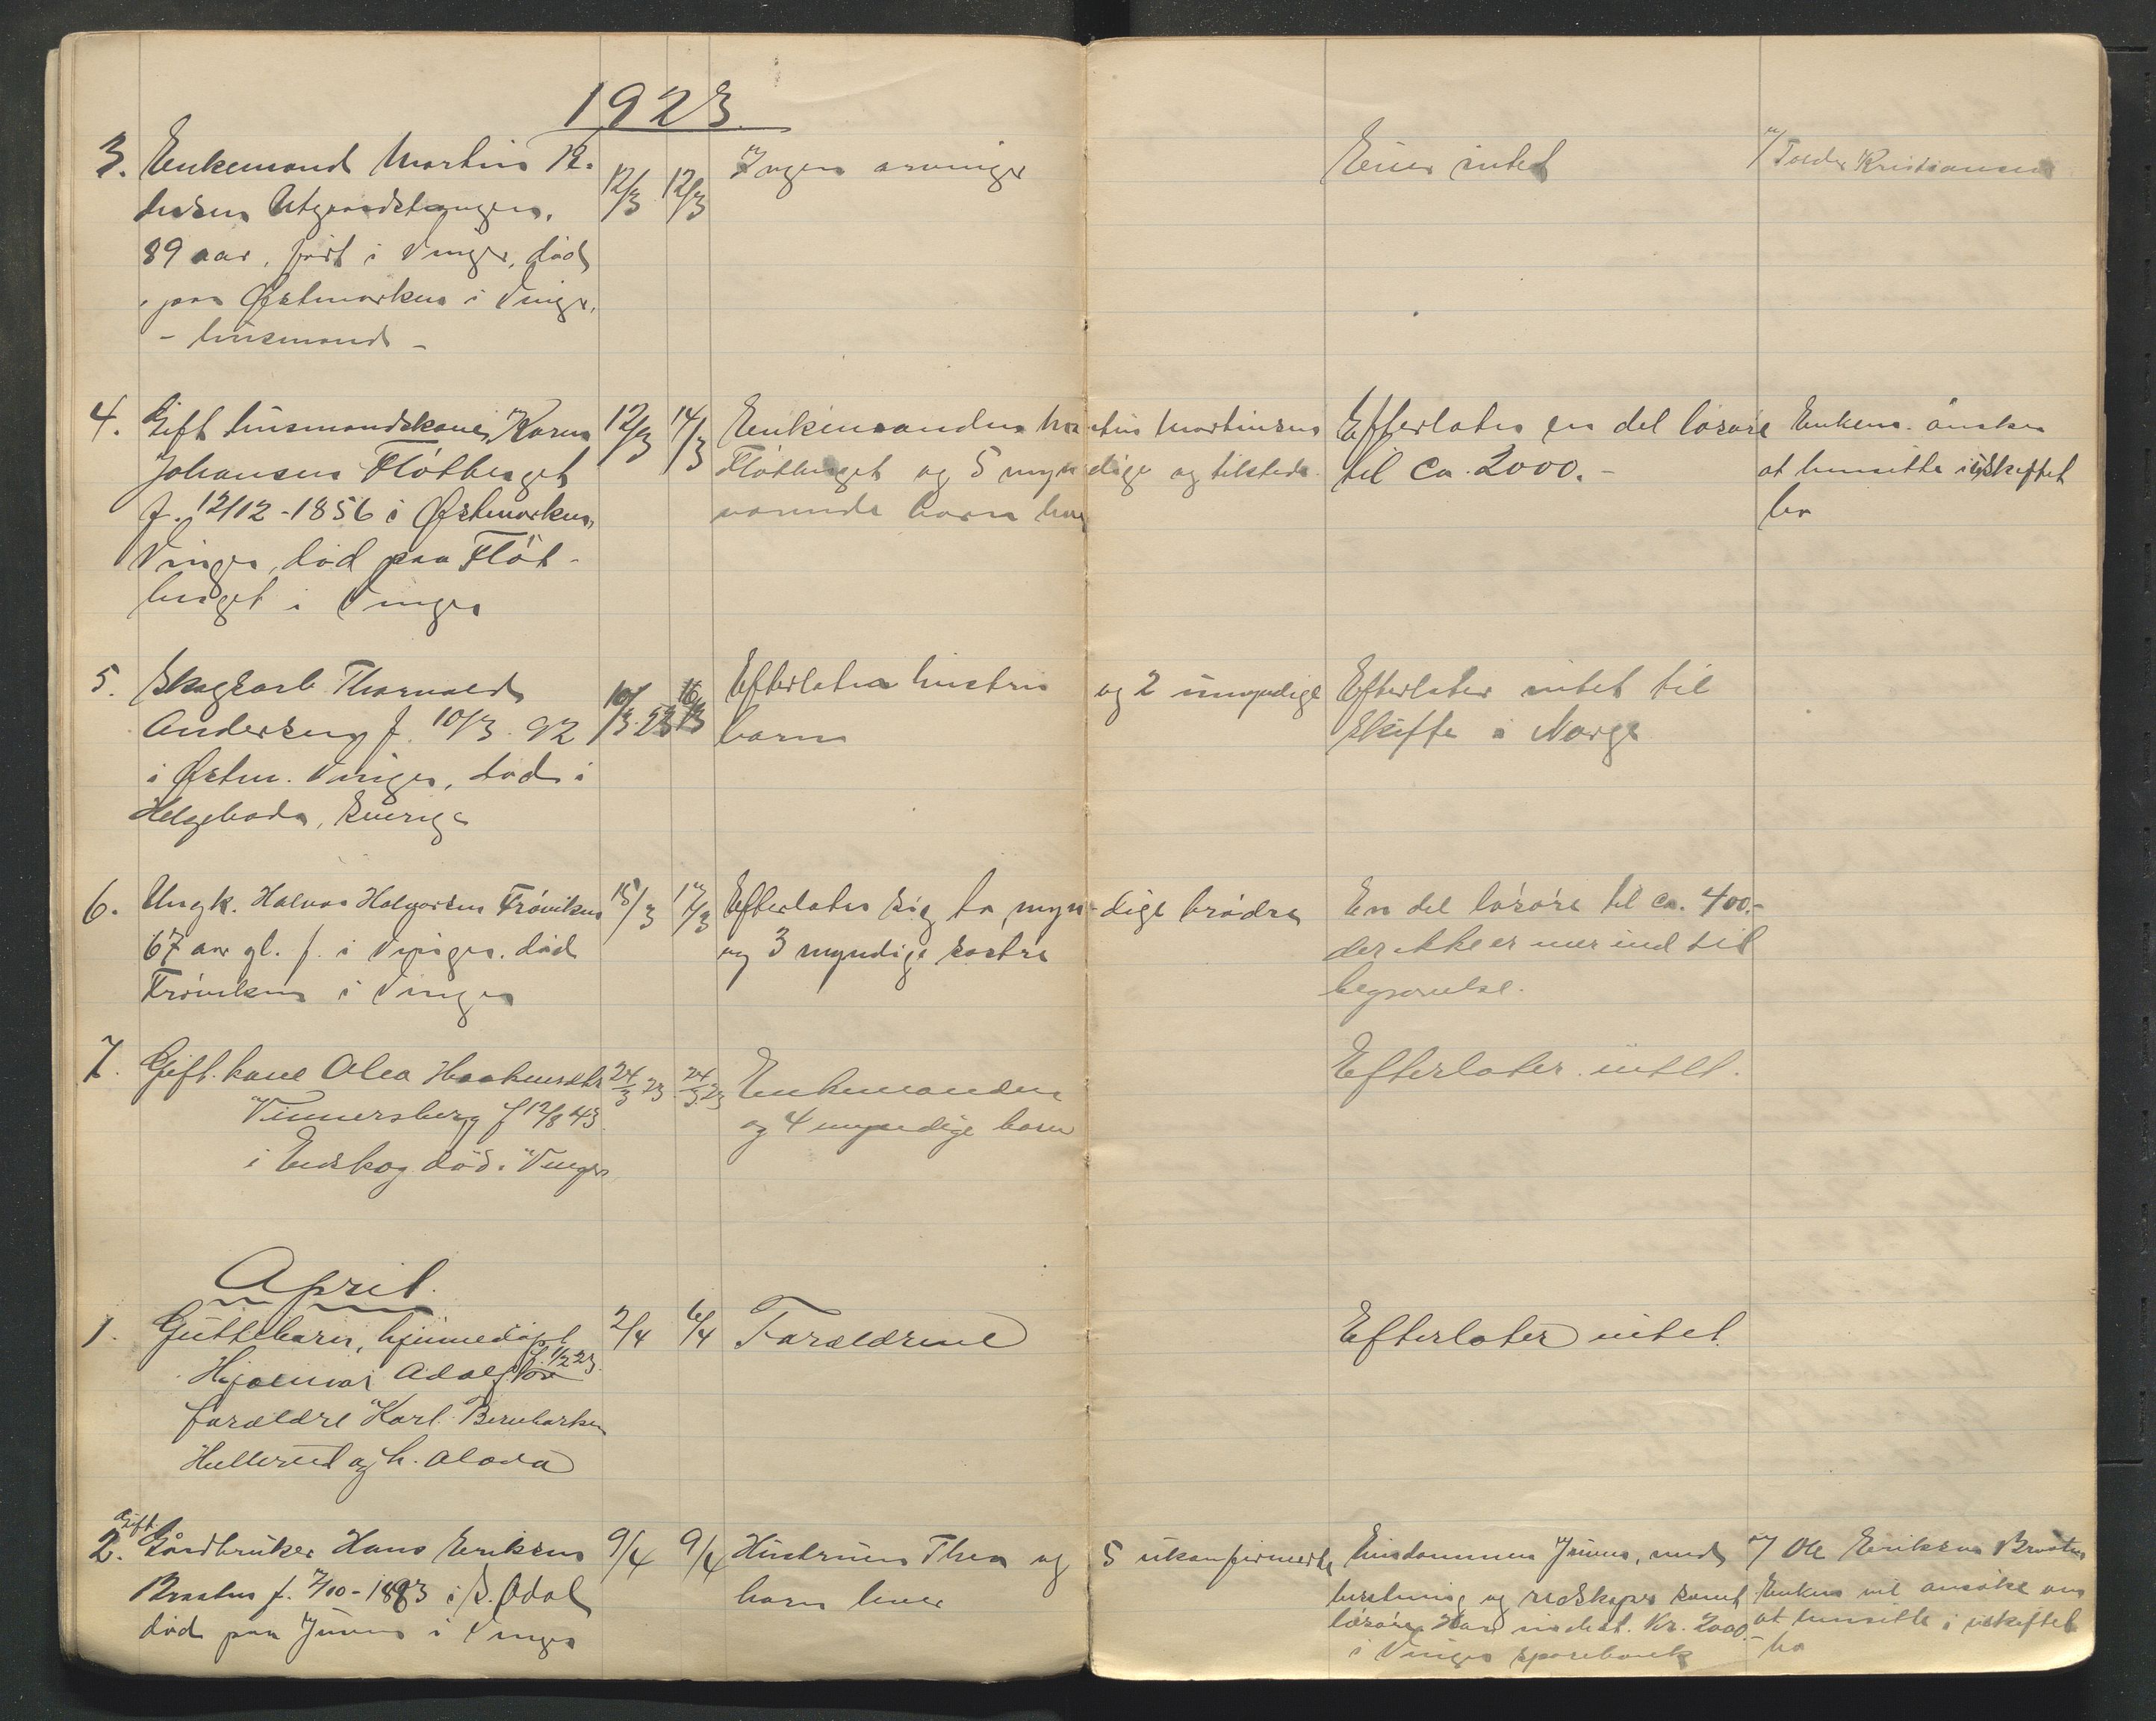 1923
3. Enkemand Martin
Utgaardstangen,
89 aar, født i Vinger, død
paa Østmarken i Vinger,
- husmand -
12/3 12/3
Ingen arvinger
Eier intet
Kristiansen
4. Gift husmandskone Karen
Johansen Fløtberget
f. 12/12-1856 i Østmarken,
Vinger, død paa Fløt-
berget i Vinger
12/3 14/3
Enkemanden Martin Martinsen
Fløtberget og 5 myndige og tilstede
værende barn
Efterlater en del løsøre
til ca. 2000.-
Enkem. ønsker
at hensitte i uskiftet
bo
5. Skogsarb. Thorvald
Andersen f. 10/3.92
i Østm. Vinger, død i
Helgeboda, Sverige
10/3.23 16/3
Efterlater hustru og 2 umyndige
barn
Efterlater intet til
Skifte i Norge
6. Ungk. Halvor Halvorsen Frøviken
67 aar gl. f. i Vinger. død
Frøviken i Vinger
15/3 17/3
Efterlater sig to myn-dige brødre
og 3 myndige søstre
En del løsøre til ca. 400.-
der ikke er mer end til
begravelse.
7. Gift kone Olea Haakensdtr
Vinnersberg f 12/8 43.
i Eidskog død i Vinger
24/3 23 24/3 23
Enkemanden
og 4 myndige barn
Efterlater intet.
April.
1. Guttebarn, hjemmedøpt
Hjalmar Adolf f. 1/2 23.
forældre Karl Bernhardsen
Hellerud og h. Alova
2/4 6/4
Forældrene
Efterlater intet.
Gift
2. Gårdbruker Hans Eriksen
Braaten f. 7/10-1883 i S. Odal
død paa i Vinger
9/4 9/4
Hustruen Thea og 5 ukonfirmerte
barn lever
Eiendommen med
besetning og redskaper samt
løsøre. Har indest. Kr. 2000.-
i Vinger sparebank
Ole Eriksen Braaten
Enken vil ansøke om
at hensitte i uskiftet
bo